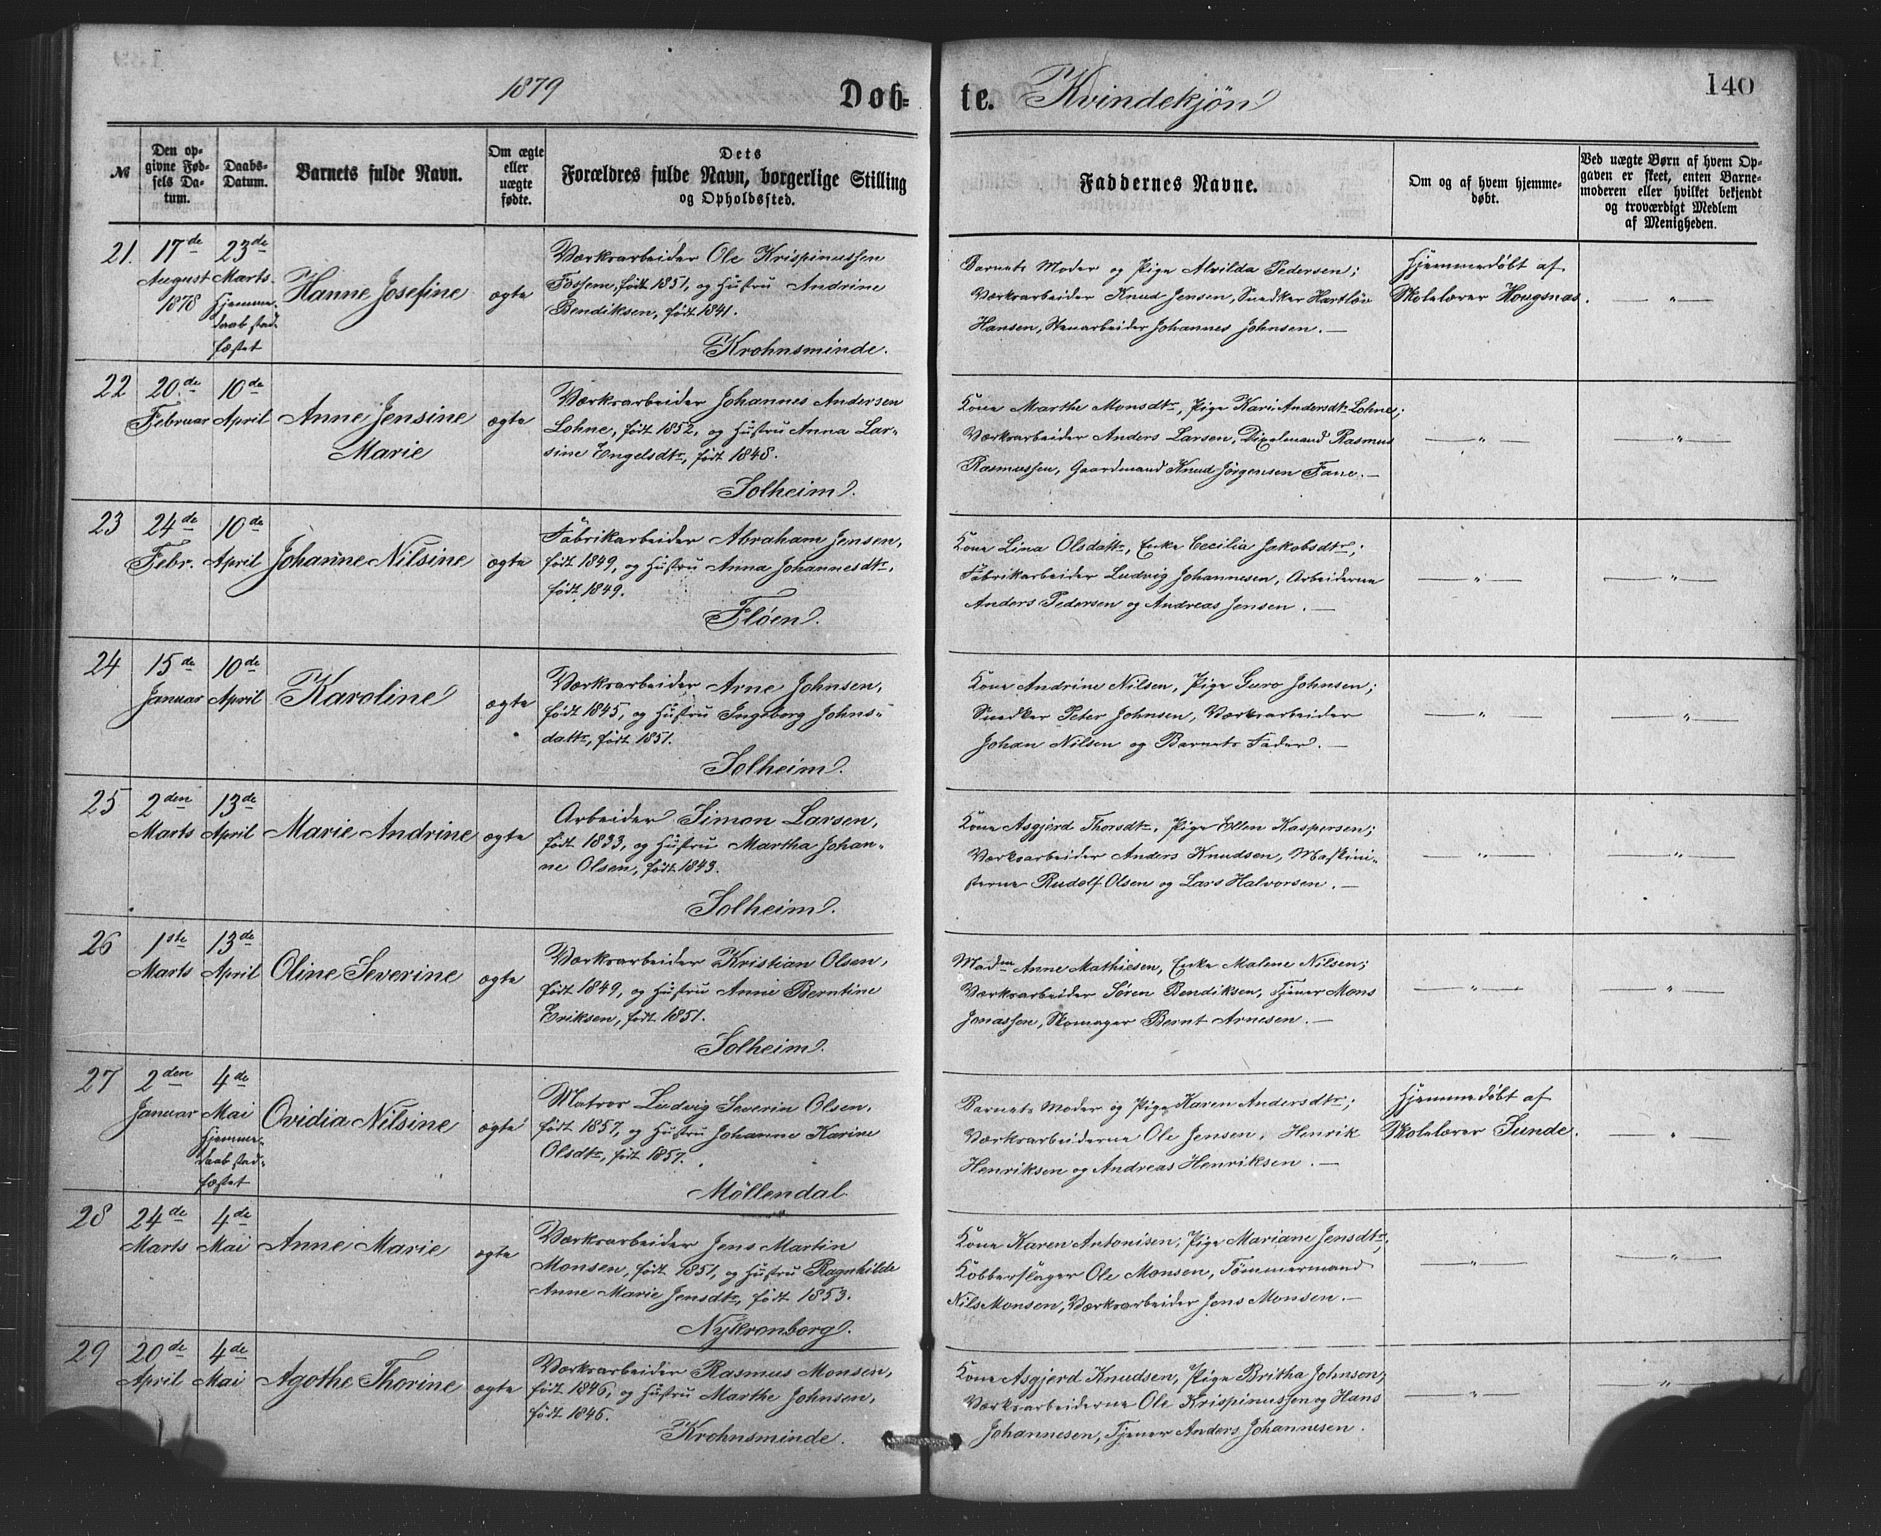 1879
Døb-
te. Kvindekjøn
140
№
Den op-
givne Fød-
sels Da-
tum.
Daabs-
Datum.
Barnets fulde Navn.
Om ægte
eller
uægte
fødte.
Dets
Forældres fulde Navn, borgerlige Stilling
og Opholdssted.
Faddernes Navne.
Om og af hvem hjemme-
døbt.
Ved uægte Børn af hvem Op-
gaven er skeet, enten Barne-
moderen eller hvilket bekjendt
og troværdigt Medlem
af Menigheden.
21.
17de
August
1878
23de
Marts.
Hjemme-
daab stad-
fæstet
Hanne Josefine
ægte
Værksarbeider Ole Krispinussen
Fossem, født 1851, og Hustru Andrine
Bendiksen, født 1841.
Krohnsminde.
Barnets Moder og Pige Alvilda Pedersen;
Værksarbeider Knud Jensen, Snedker Hartløv
Hansen, Stenarbeider Johannes Johnsen. —
Hjemmedøbt af
Skolelærer Hougsnæs.
— " —
22
20de
Februar
10de
April
Anne Jensine
Marie
ægte
Værksarbeider Johannes Andersen
Lohne, født 1852, og Hustru Anna Lar-
sine Engelsdtr, født 1848.
Solheim.
Kone Marthe Monsdtr, Pige Kari Andersdtr Lohne;
Værksarbeider Anders Larsen, Dixelmand Rasmus
Rasmussen, Gaardmand Knud Jørgensen Fane. —
— " —
— " —
23
24de
Febr.
10de
April
Johanne Nilsine
ægte
Fabrikarbeider Abraham Jensen,
født 1849, og Hustru Anna Johannesdtr,
født 1849.
Fløen.
Kone Lina Olsdattr, Enke Cecilia Jakobsdtr;
Fabrikarbeider Ludvig Johannesen, Arbeiderne
Anders Pedersen og Andreas Jensen. —
— " —
— " —
24
15de
Januar
10de
April
Karoline
ægte
Værksarbeider Arne Johnsen,
født 1845, og Hustru Ingeborg Johns-
dattr, født 1851.
Solheim.
Kone Andrine Nilsen, Pige Guro Johnsen;
Snedker Peter Johnsen, Værksarbeider
Johan Nilsen og Barnets Fader. —
— " —
— " —
25
2den
Marts
13de
April
Marie Andrine
ægte
Arbeider Simon Larsen,
født 1833, og Hustru Martha Johan-
ne Olsen, født 1843.
Solheim.
Kone Asgjerd Thorsdtr, Pige Ellen Kaspersen;
Værksarbeider Anders Knudsen, Maskini-
sterne Rudolf Olsen og Lars Halvorsen. —
— " —
— " —
26
1ste
Marts
13de
April
Oline Severine
ægte
Værksarbeider Kristian Olsen,
født 1849, og Hustru Anne Berntine
Eriksen, født 1851.
Solheim.
Madm Anne Mathiesen, Enke Malene Nilsen;
Værksarbeider Søren Bendiksen, Tjener Mons
Jonassen, Skomager Bernt Arnesen. —
— " —
— " —
27
2den
Januar
4de
Mai
Hjemme-
daab stad-
fæstet
Ovidia Nilsine
ægte
Matros Ludvig Severin Olsen,
født 1857, og Hustru Johanne Karine
Olsdtr, født 1857.
Möllendal
Barnets Moder og Pige Karen Andersdtr;
Værksarbeiderne Ole Jensen, Henrik
Henriksen og Andreas Henriksen. —
Hjemmedøbt af
Skolelærer Sunde.
— " —
28
24de
Marts
4de
Mai
Anne Marie
ægte
Værksarbeider Jens Martin
Monsen, født 1851, og Hustru Ragnhilde
Anne Marie Jensdtr, født 1853.
Nykronborg.
Kone Karen Antonisen, Pige Mariane Jensdtr;
Kobberslager Ole Monsen, Tömmermand
Nils Monsen, Værksarbeider Jens Monsen. —
— " —
— " —
29
20de
April
4de
Mai
Agothe Thorine
ægte
Værksarbeider Rasmus Monsen,
født 1846, og Hustru Marthe Johnsen,
født 1846.
Krohnsminde.
Kone Asgjerd Knudsen, Pige Britha Johnson;
Værksarbeiderne Ole Krispinussen og Hans
Johannesen, Tjener Anders Johannesen.
— " —
— " —